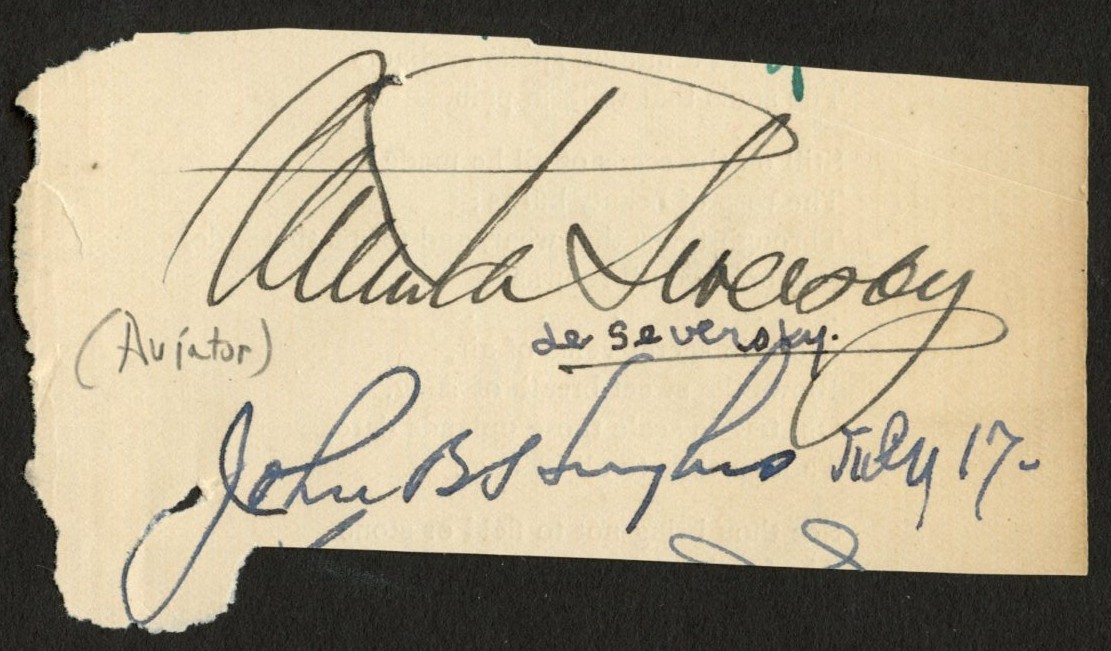 Alexander P. Seversky
de Seversky.
(Aviator)
John B Hughes July 17.